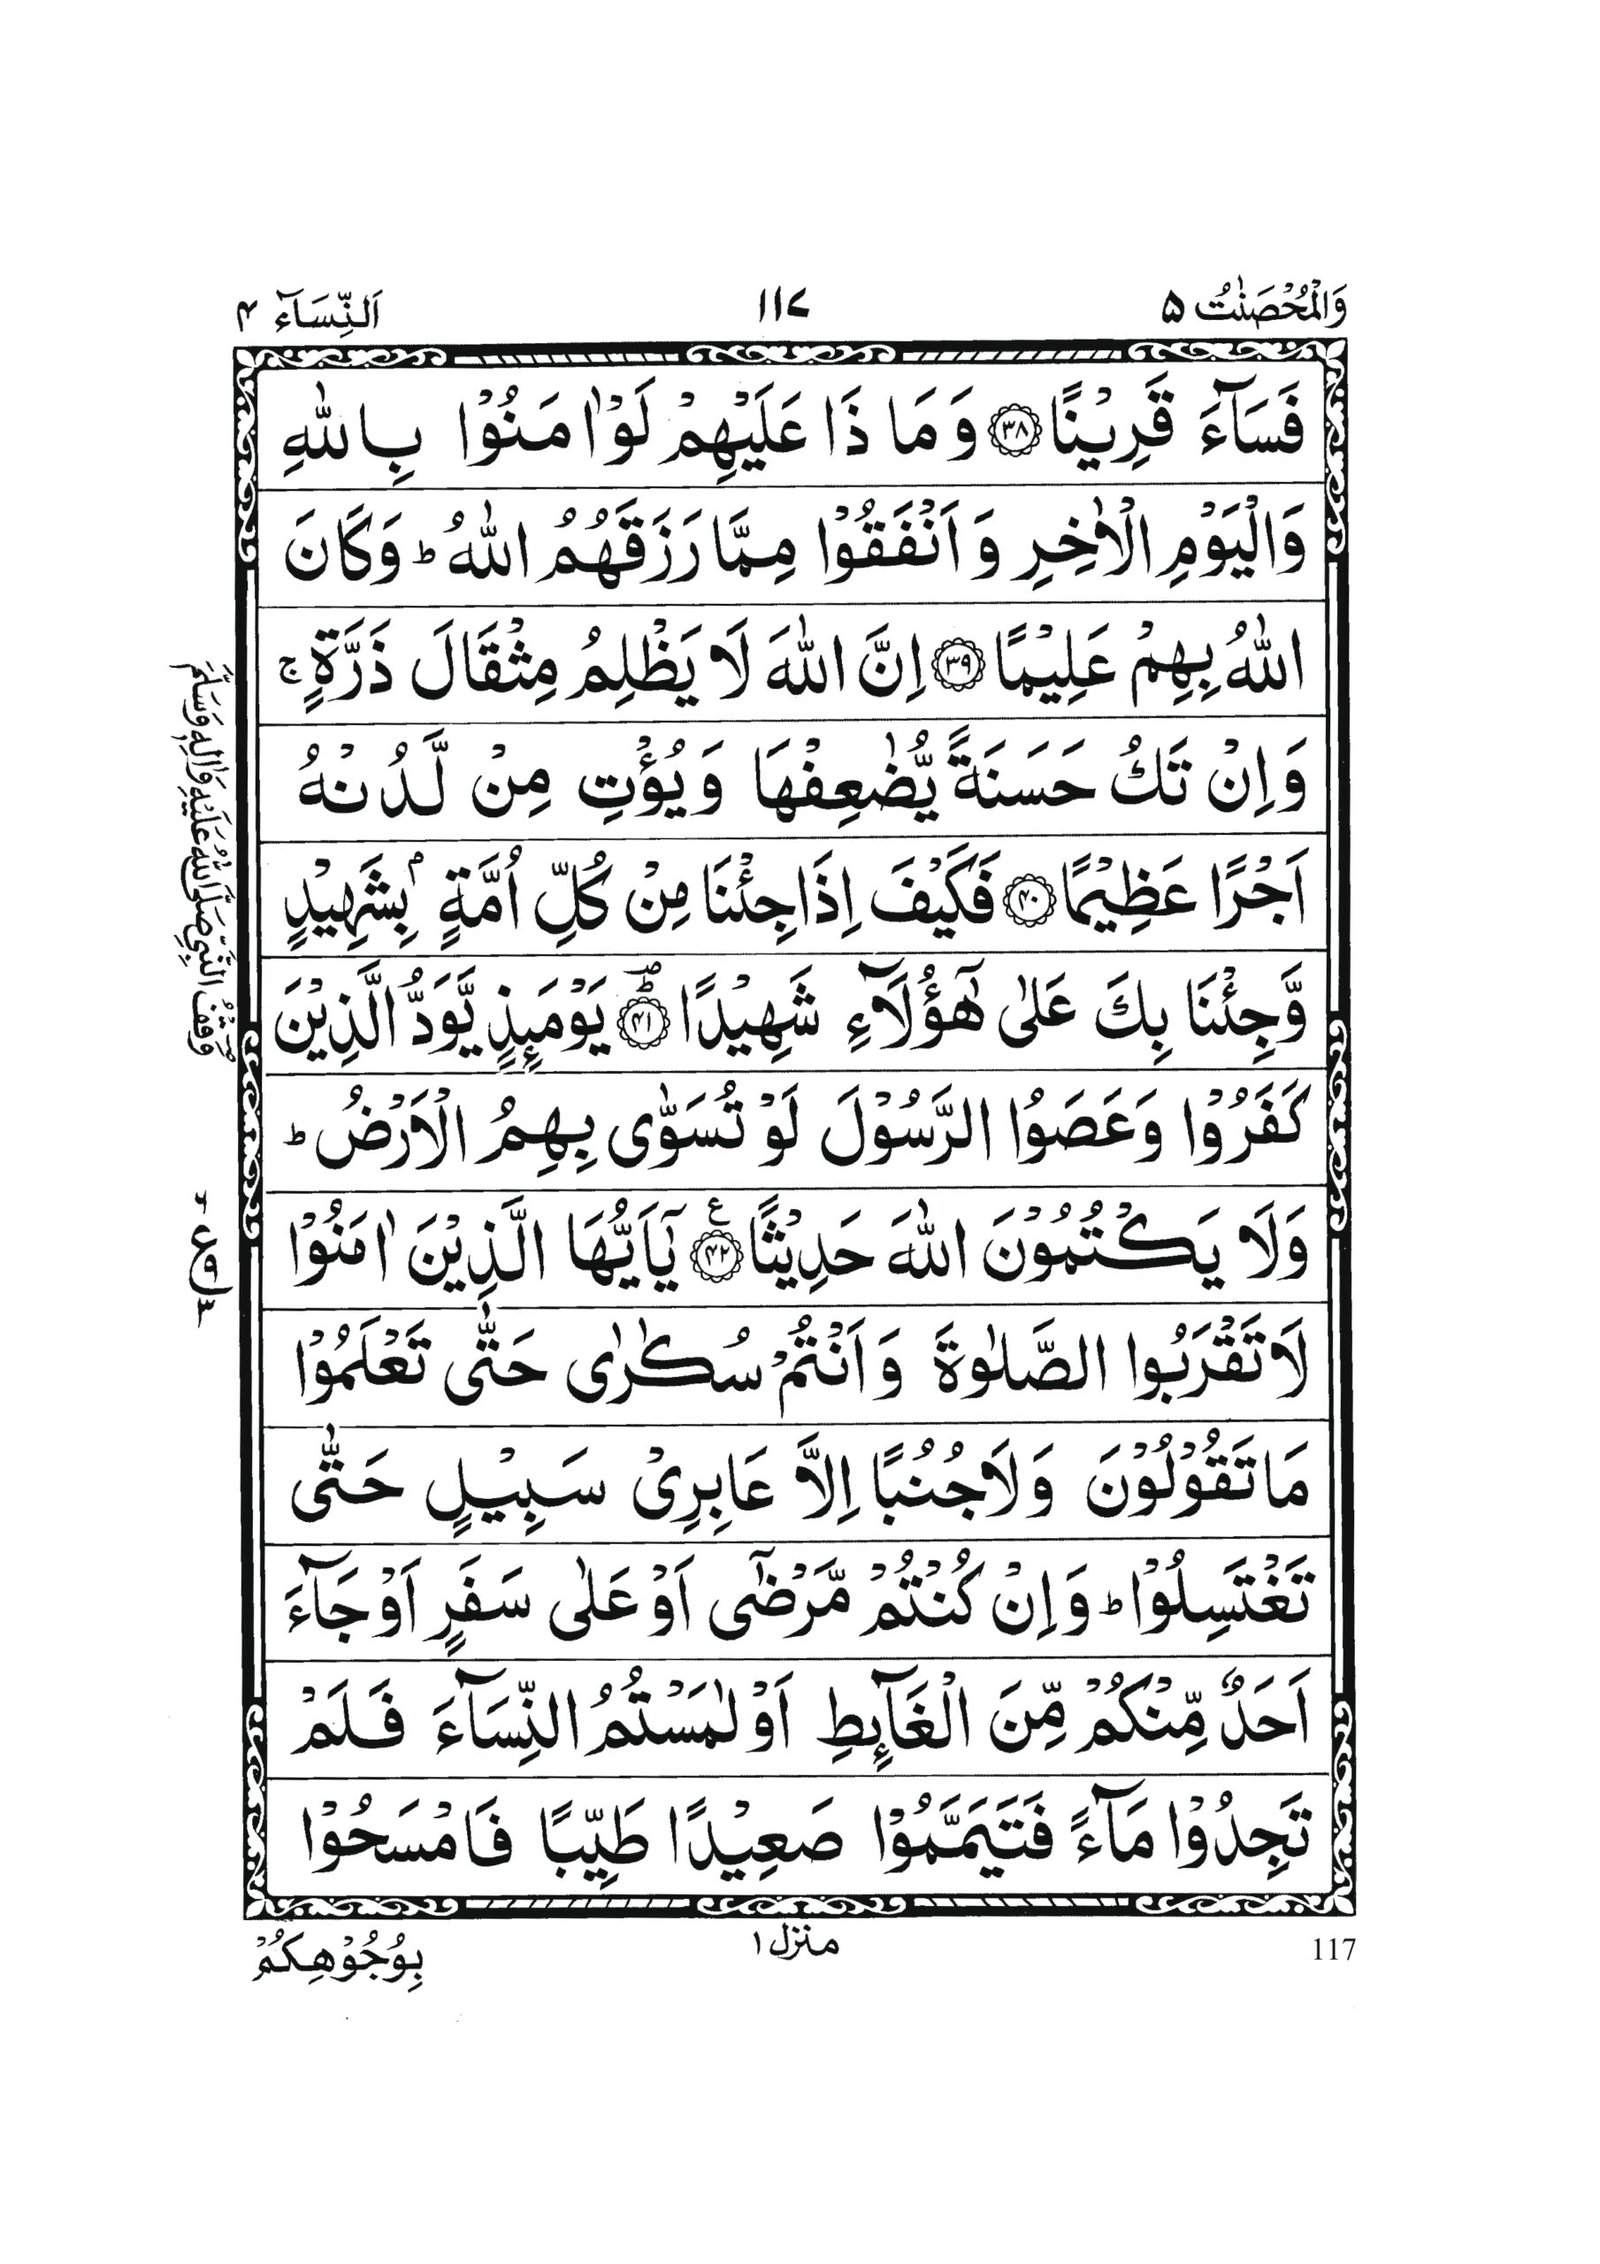 وَالْمُحْصَنٰتُ ۵
۱۱۷
اَلنِّسَآء ۴
فَسَآءَ قَرِيْنًا ۝۳۸ وَ مَا ذَا عَلَيْهِمْ لَوْاٰ مَنُوْا بِاللّٰهِ
وَالْيَوْمِ الْاٰخِرِ وَ اَنْفَقُوْا مِمَّا رَزَقَهُمُ اللّٰهُ ؕ وَكَانَ
اللّٰهُ بِهِمْ عَلِيْمًا ۝۳۹ اِنَّ اللّٰهَ لَا يَظْلِمُ مِثْقَالَ ذَرَّةٍ ۚ
وَ اِنْ تَكُ حَسَنَةً يُّضٰعِفْهَا وَ يُؤْتِ مِنْ لَّدُنْهُ
اَجْرًا عَظِيْمًا ۝۴۰ فَكَيْفَ اِذَا جِئْنَا مِنْ كُلِّ اُمَّةٍۭ بِشَهِيْدٍ
وَّجِئْنَا بِكَ عَلٰى هٰٓؤُلَآءِ شَهِيْدًا ۝۴۱ؕؔ يَوْمَىِٕذٍ يَّوَدُّ الَّذِيْنَ
كَفَرُوْا وَعَصَوُا الرَّسُوْلَ لَوْ تُسَوّٰى بِهِمُ الْاَرْضُ ؕ
وَلَا يَكْتُمُوْنَ اللّٰهَ حَدِيْثًا ۝۴۲ ع يٰٓاَيُّهَا الَّذِيْنَ اٰمَنُوْا
لَا تَقْرَبُوا الصَّلٰوةَ وَ اَنْتُمْ سُكٰرٰى حَتّٰى تَعْلَمُوْا
مَا تَقُوْلُوْنَ وَلَا جُنُبًا اِلَّا عَابِرِيْ سَبِيْلٍ حَتّٰى
تَغْتَسِلُوْا ؕ وَ اِنْ كُنْتُمْ مَّرْضٰٓى اَوْ عَلٰى سَفَرٍ اَوْ جَآءَ
اَحَدٌ مِّنْكُمْ مِّنَ الْغَآىِٕطِ اَوْ لٰمَسْتُمُ النِّسَآءَ فَلَمْ
تَجِدُوْا مَآءً فَتَيَمَّمُوْا صَعِيْدًا طَيِّبًا فَامْسَحُوْا
وقف النبي صَلَّى اللّٰهُ عَلَيْهِ وَاٰلِهٖ وَسَلَّمَ
ع ۹
بِوُجُوْهِكُمْ
منزل ۱
117